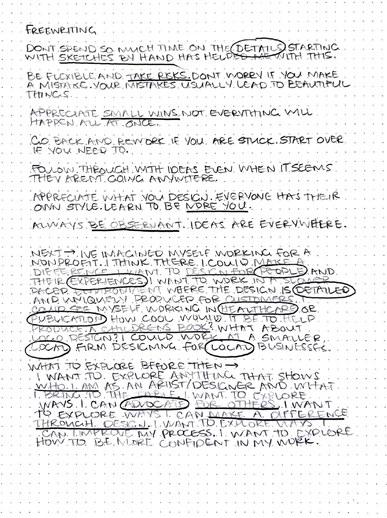 FREEWRITING
DON'T SPEND SO MUCH TIME ON THE DETAILS. STARTING
WITH SKETCHES BY HAND HAS HELPED ME WITH THIS.
BE FLEXIBLE AND TAKE RISKS. DON'T WORRY IF YOU MAKE
A MISTAKE. YOUR MISTAKES USUALLY LEAD TO BEAUTIFUL
THINGS.
APPRECIATE SMALL WINS. NOT EVERYTHING WILL
HAPPEN ALL AT ONCE.
GO BACK AND REWORK IF YOU ARE STUCK. START OVER
IF YOU NEED TO.
FOLLOW THROUGH WITH IDEAS EVEN WHEN IT SEEMS
THEY AREN'T GOING ANYWHERE.
APPRECIATE WHAT YOU DESIGN. EVERYONE HAS THEIR
OWN STYLE. LEARN TO BE MORE YOU.
ALWAYS BE OBSERVANT. IDEAS ARE EVERYWHERE.
NEXT → I'VE IMAGINED MYSELF WORKING FOR A
NONPROFIT. I THINK THERE I COULD MAKE A
DIFFERENCE. I WANT TO DESIGN FOR PEOPLE AND
THEIR EXPERIENCES. I WANT TO WORK IN A SLOWER
PACED ENVIRONMENT WHERE THE DESIGN IS DETAILED
AND UNIQUELY PRODUCED FOR CUSTOMERS. I
COULD SEE MYSELF WORKING IN HEALTHCARE OR
PUBLICATION. HOW COOL WOULD IT BE TO HELP
PRODUCE A CHILDREN'S BOOK? WHAT ABOUT
LOGO DESIGN? I COULD WORK AT A SMALLER,
LOCAL FIRM DESIGNING FOR LOCAL BUSINESSES.
WHAT TO EXPLORE BEFORE THEN →
I WANT TO EXPLORE ANYTHING THAT SHOWS
WHO I AM AS AN ARTIST/DESIGNER AND WHAT
I BRING TO THE TABLE. I WANT TO EXPLORE
WAYS I CAN ADVOCATE FOR OTHERS. I WANT
TO EXPLORE WAYS I CAN MAKE A DIFFERENCE
THROUGH DESIGN. I WANT TO EXPLORE WAYS I
CAN IMPROVE MY PROCESS. I WANT TO EXPLORE
HOW TO BE MORE CONFIDENT IN MY WORK.